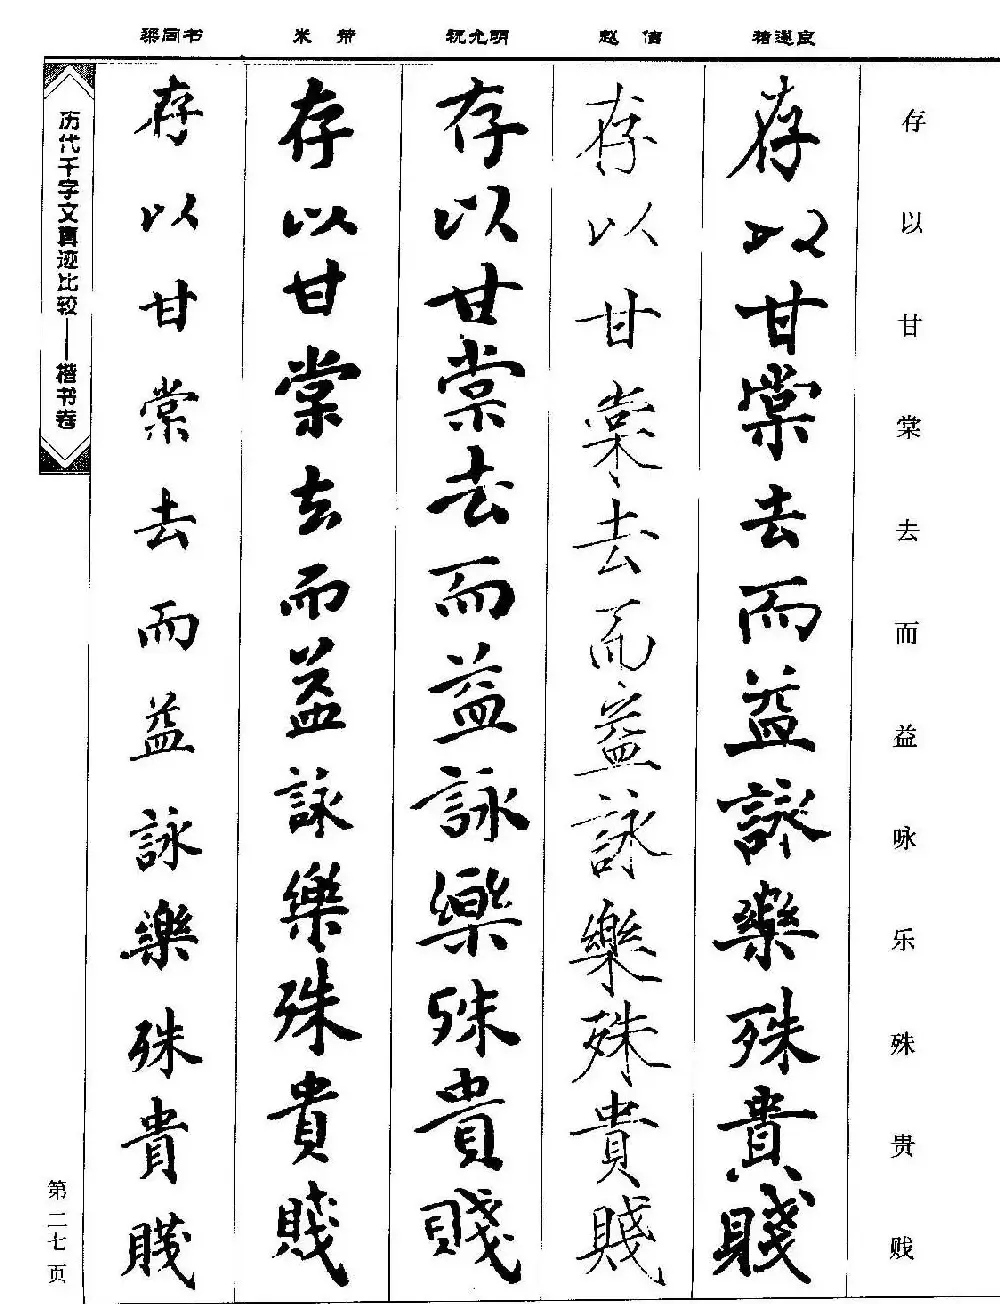 梁同书 米芾 祝允明 赵佶 褚遂良
存以甘棠去而益咏乐殊贵贱
存以甘棠去而益詠樂殊貴賤
存以甘棠去而益詠樂殊貴賤
存以甘棠去而益詠樂殊貴賤
存以甘棠去而益詠樂殊貴賤
存以甘棠去而益詠樂殊貴賤
历代千字文真迹比较——楷书卷
第二七页